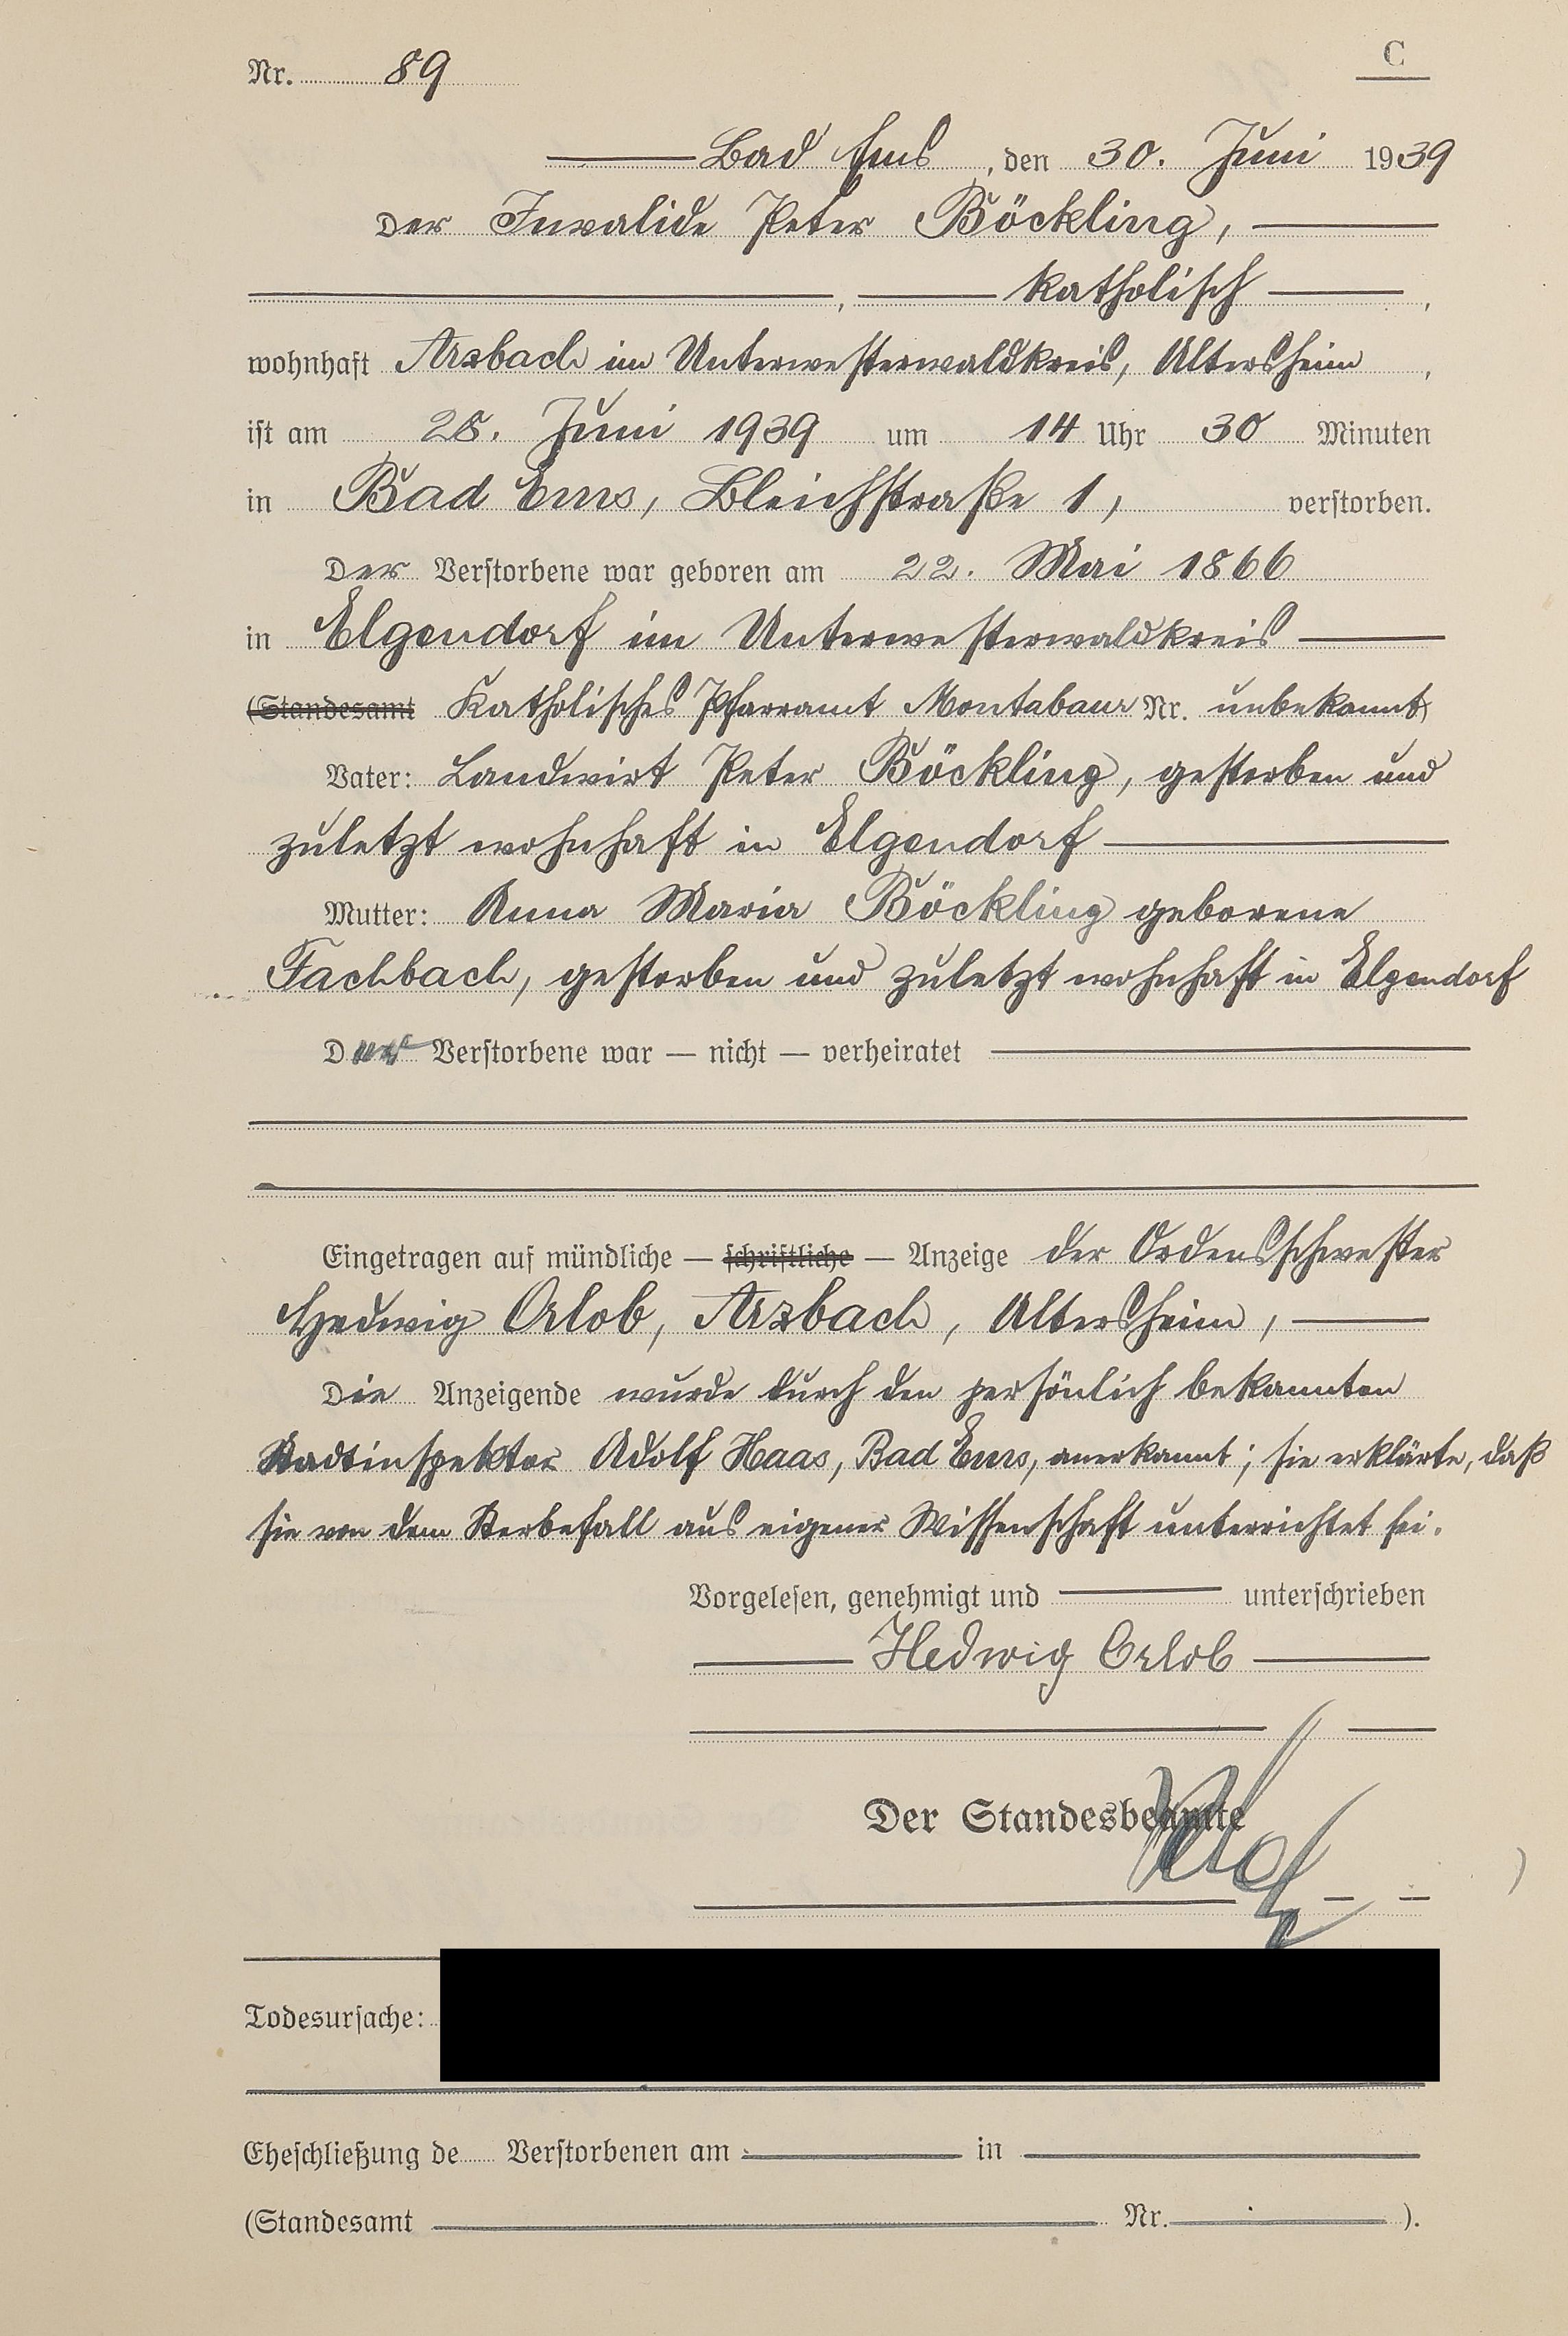 Nr. 89
C
Bad Ems, den 30. Juni 1939
Der Invalide Peter Böckling,
, katholisch,
wohnhaft Arzbach im Unterwesterwaldkreis, Altersheim,
ist am 28. Juni 1939 um 14 Uhr 30 Minuten
in Bad Ems, Bleichstraße 1, verstorben.
Der Verstorbene war geboren am 22. Mai 1866
in Elgendorf im Unterwesterwaldkreis
(Standesamt Katholisches Pfarramt Montabaur Nr. unbekannt)
Vater: Landwirt Peter Böckling, gestorben und
zuletzt wohnhaft in Elgendorf
Mutter: Anna Maria Böckling geborene
Fachbach, gestorben und zuletzt wohnhaft in Elgendorf
Der Verstorbene war — nicht — verheiratet
Eingetragen auf mündliche — schriftliche — Anzeige der Ordensschwester
Hedwig Orlob, Arzbach, Altersheim,
Die Anzeigende wurde durch den persönlich bekannten
Stadtinspektor Adolf Haas, Bad Ems, anerkannt; sie erklärte, daß
sie von dem Sterbefall aus eigener Wissenschaft unterrichtet sei.
Vorgelesen, genehmigt und unterschrieben
Hedwig Orlob
Der Standesbeamte
Todesursache:
Eheschließung de Verstorbenen am in
(Standesamt Nr. ).